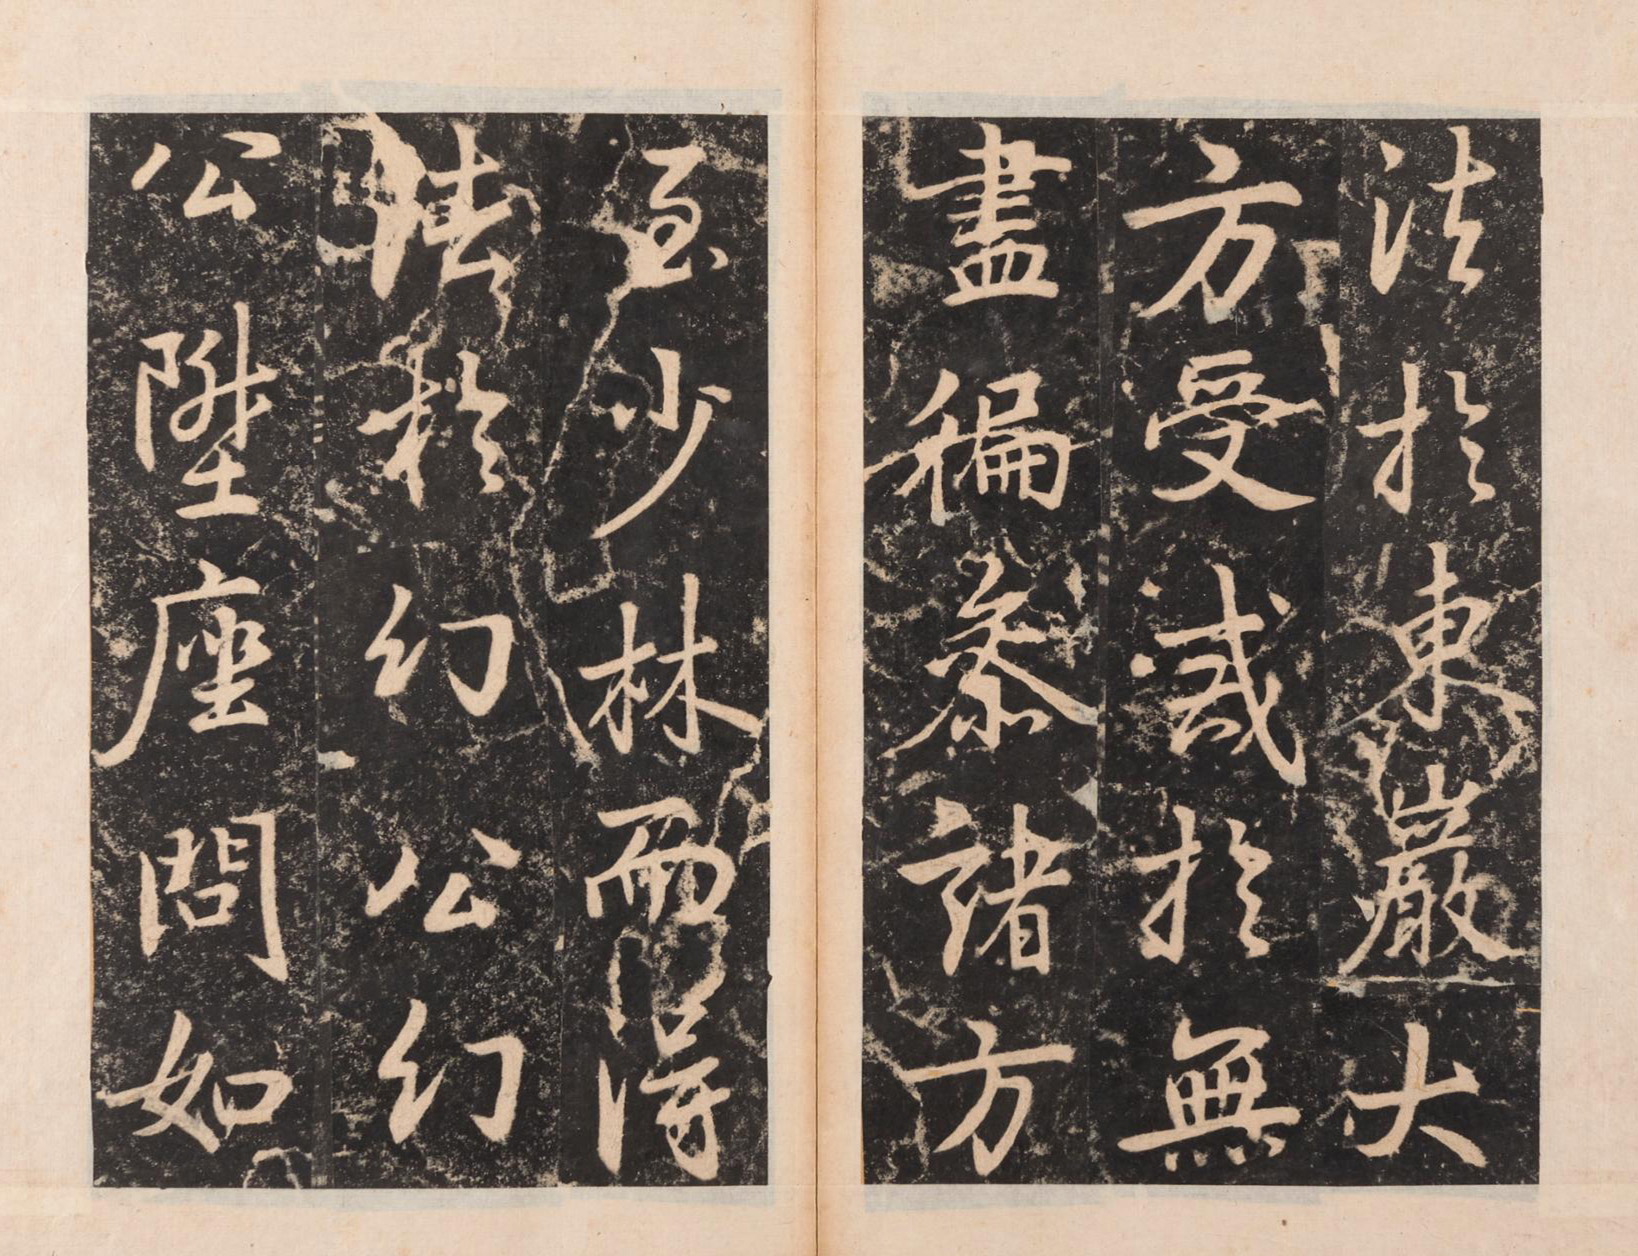 法於東巖大
方受戒於無
盡徧叅諸方
至少林而得
法於幻公幻
公陞座問如